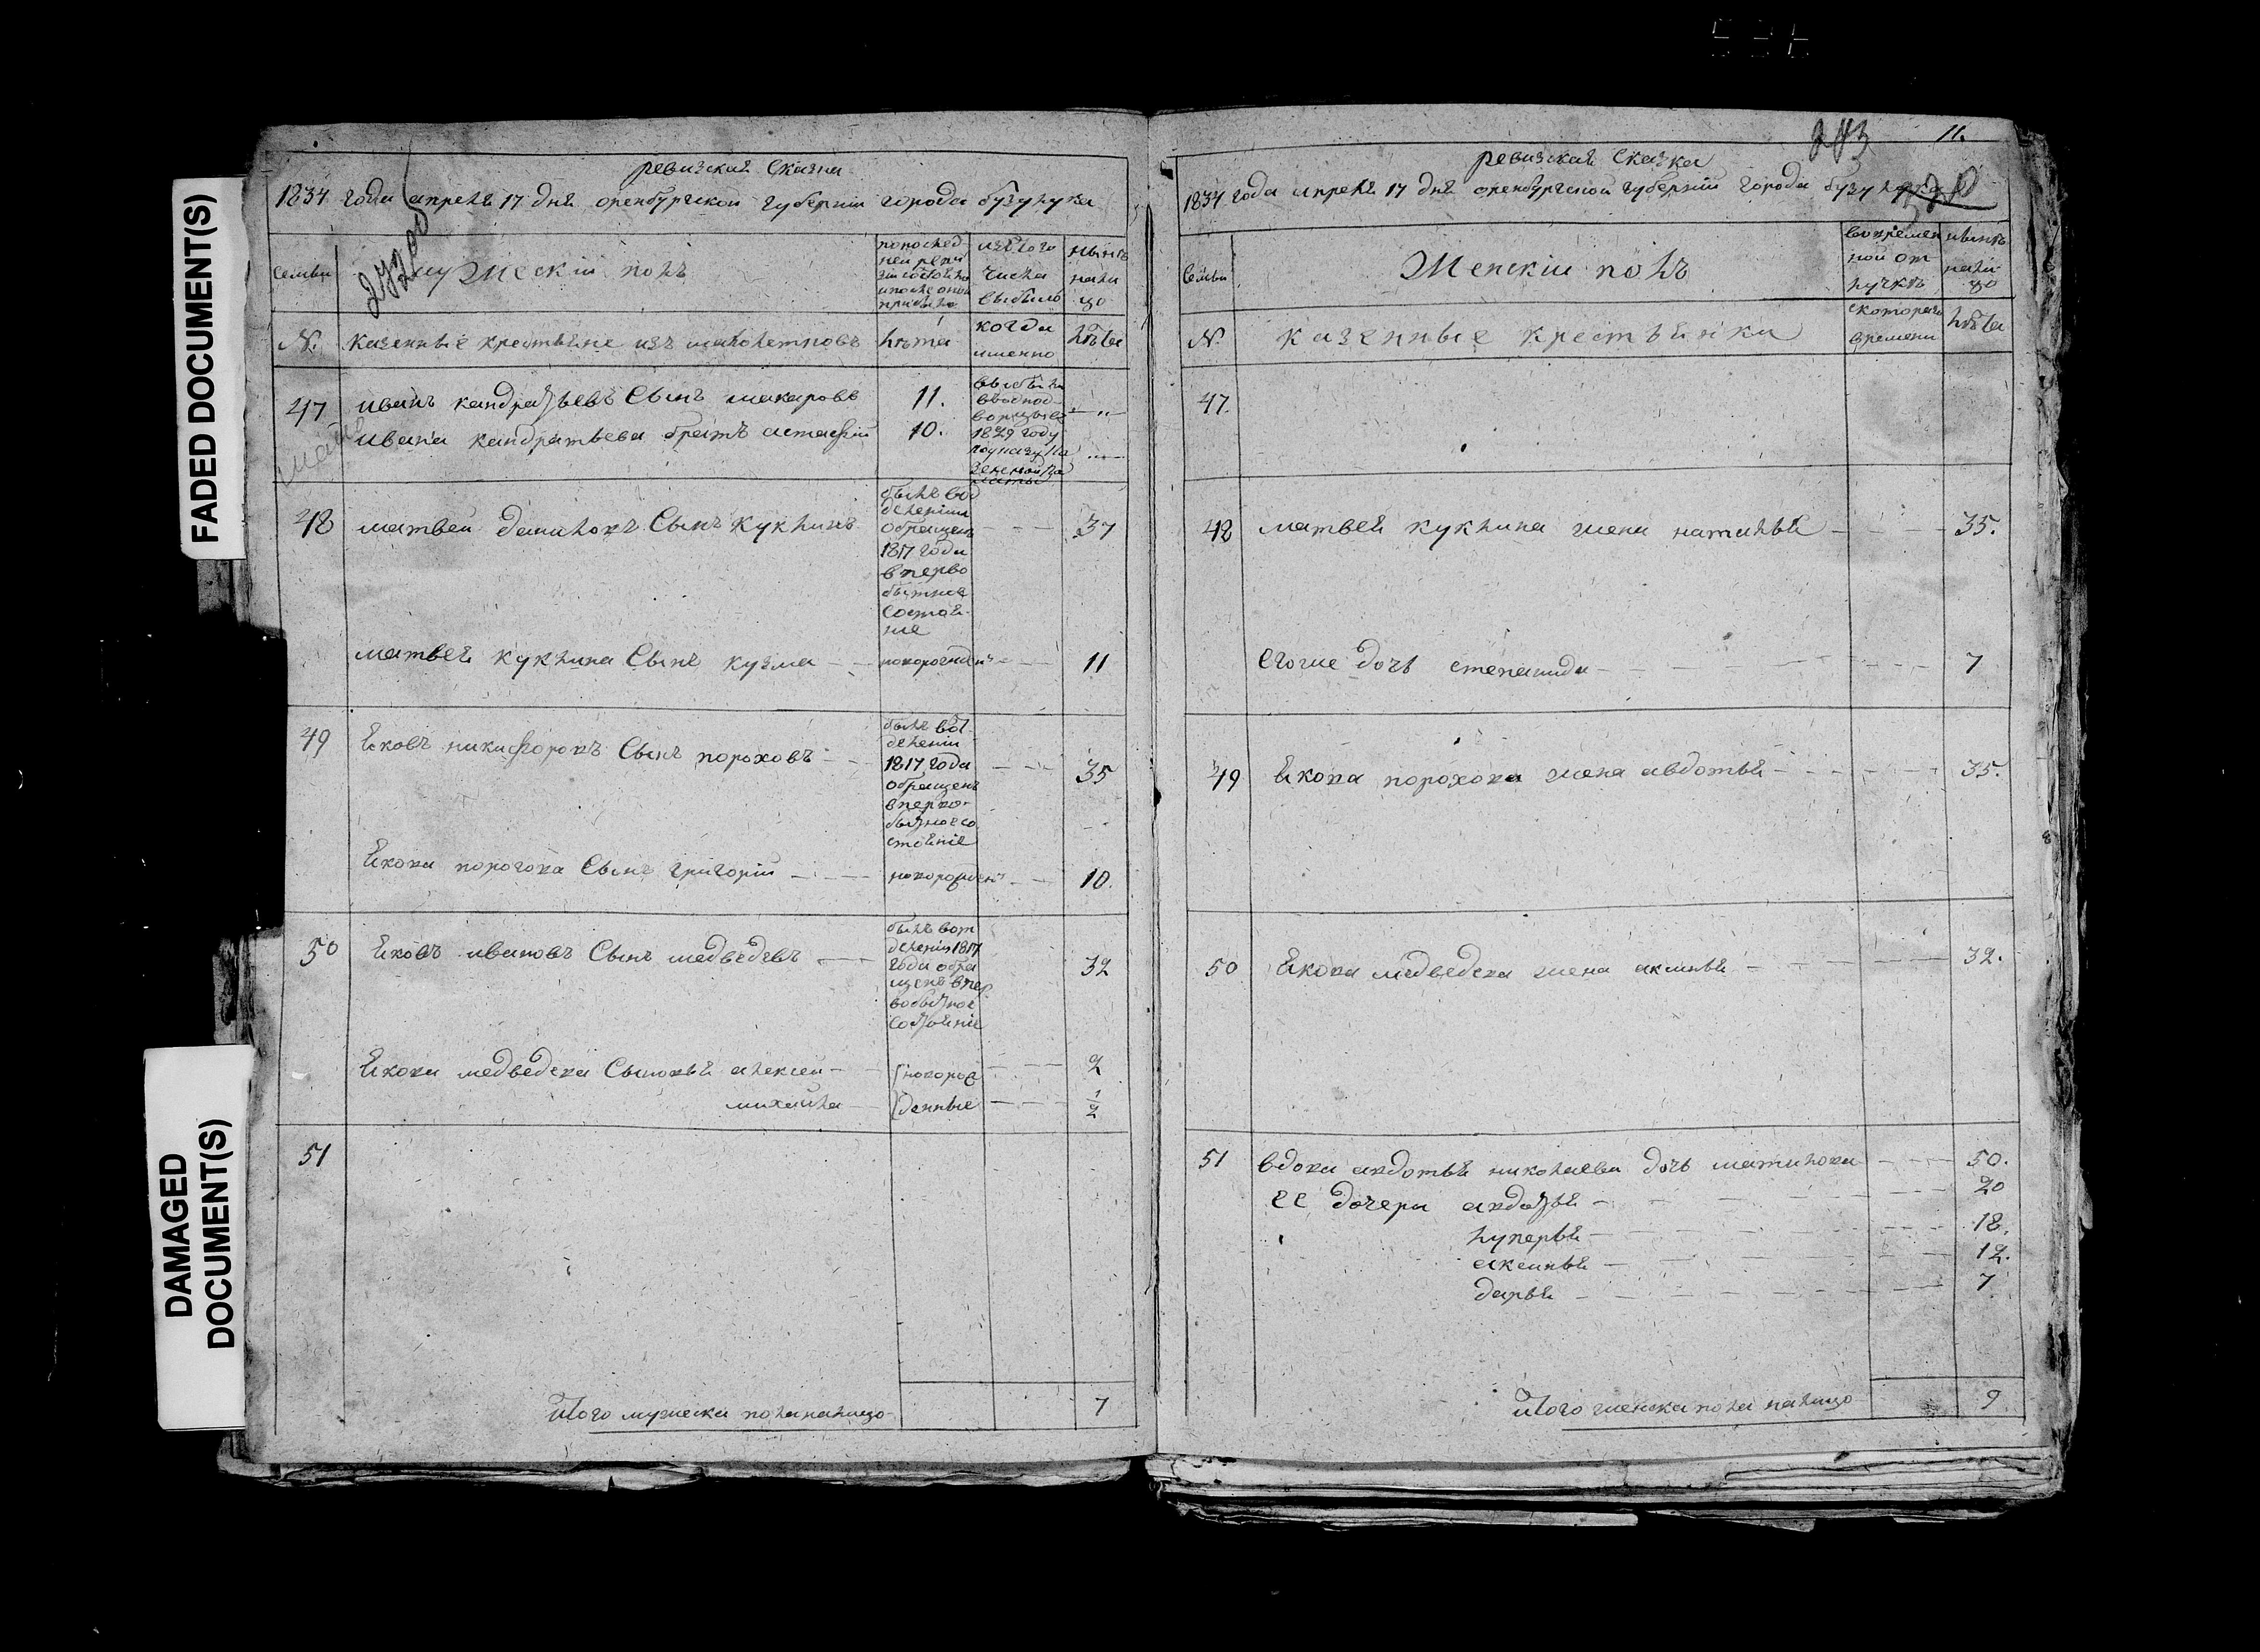 FADED DOCUMENT(S)
DAMAGED DOCUMENT(S)
ревизская Сказка
1834 года апреля 17 дня оренбургской губернии города бузулука
семьи
мужеский полъ
по послед
ней реви
зии состояло
и после оной
прибыло
изъ того
числа
выбыло
ныне
нали
цо
N.
казенные крестьяне изъ малолетновъ
лета
когда
именно
лета
47
иванъ кандратьевъ Сынъ макаровъ
11.
ивана кандратьева братъ астафий
10.
выбыли
в водно
ворцы въ
1829 году
по указу ка
зенной па
латы
48
матвей даниловъ Сынъ куклинъ
былъ вод
делении
обращенъ
1817 года
в перво
бытное
Состоя
ние
37
матвея куклина Сынъ кузма
новорожденъ
11
49
Яковъ никифоровъ Сынъ пороховъ
былъ вот
делении
1817 года
обращенъ
в перво
бытное со
стояние
35
Якова порохова Сынъ григорий
новорожденъ
10.
50
Яковъ ивановъ Сынъ медведевъ
былъ вот
делении 1817
года обра
щенъ в пер
вобытное
Состояние
32
Якова медведева Сыновья алексей
новорож
2
михайла
денные
1/2
51
Итого мужска пола налицо
7
243
11.
ревизская Сказка
1834 года апреля 17 дня оренбургской губернии города бузулука
Семьи
Женский полъ
во времен
ной от
лучке
ныне
нали
цо
N.
казенные крестьянки
с которого
времени
лета
47.
48
матвея куклина жена наталья
35.
Егоже дочь степанида
7
49
Якова порохова жена авдотья
35.
50
Якова медведева жена аксинья
32.
51
вдова авдотья николаева дочь матилова
50.
ее дочери авдотья
20
лукерья
18.
аксинья
12.
дарья
7
Итого женска пола налицо
9